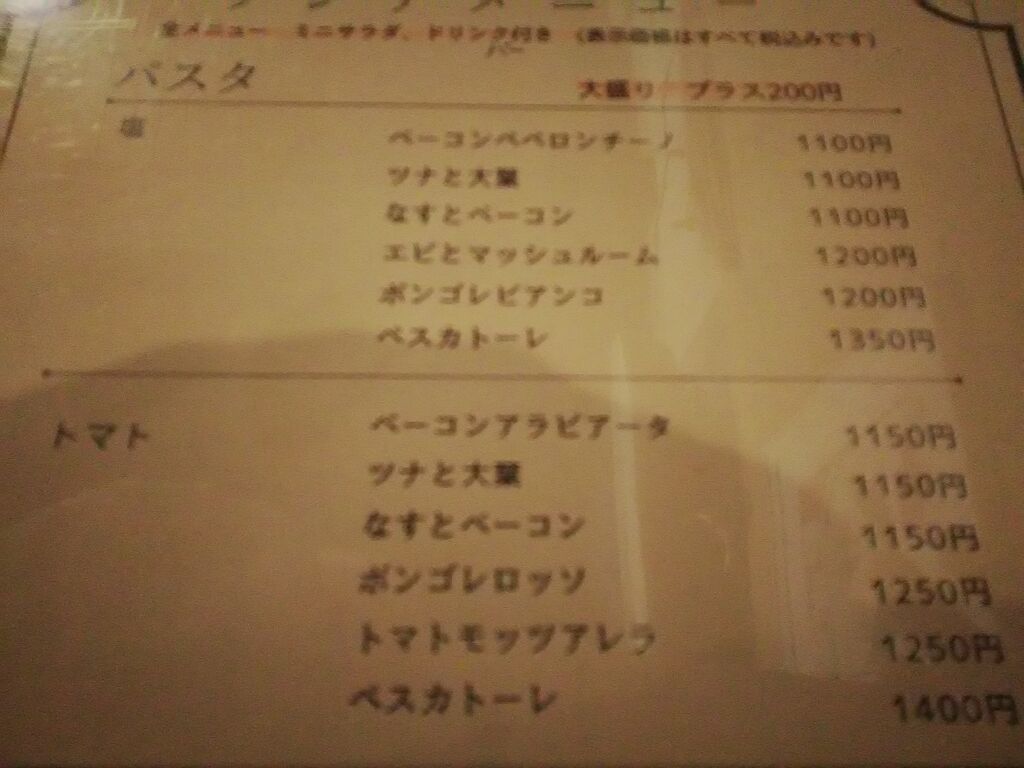 ランチメニュー
全メニュー ミニサラダ、ドリンク付き (表示価格はすべて税込みです)
バー
パスタ 大盛り プラス200円
塩 ベーコンペペロンチーノ 1100円
ツナと大葉 1100円
なすとベーコン 1100円
エビとマッシュルーム 1200円
ボンゴレビアンコ 1200円
ペスカトーレ 1350円
トマト ベーコンアラビアータ 1150円
ツナと大葉 1150円
なすとベーコン 1150円
ボンゴレロッソ 1250円
トマトモッツアレラ 1250円
ペスカトーレ 1400円